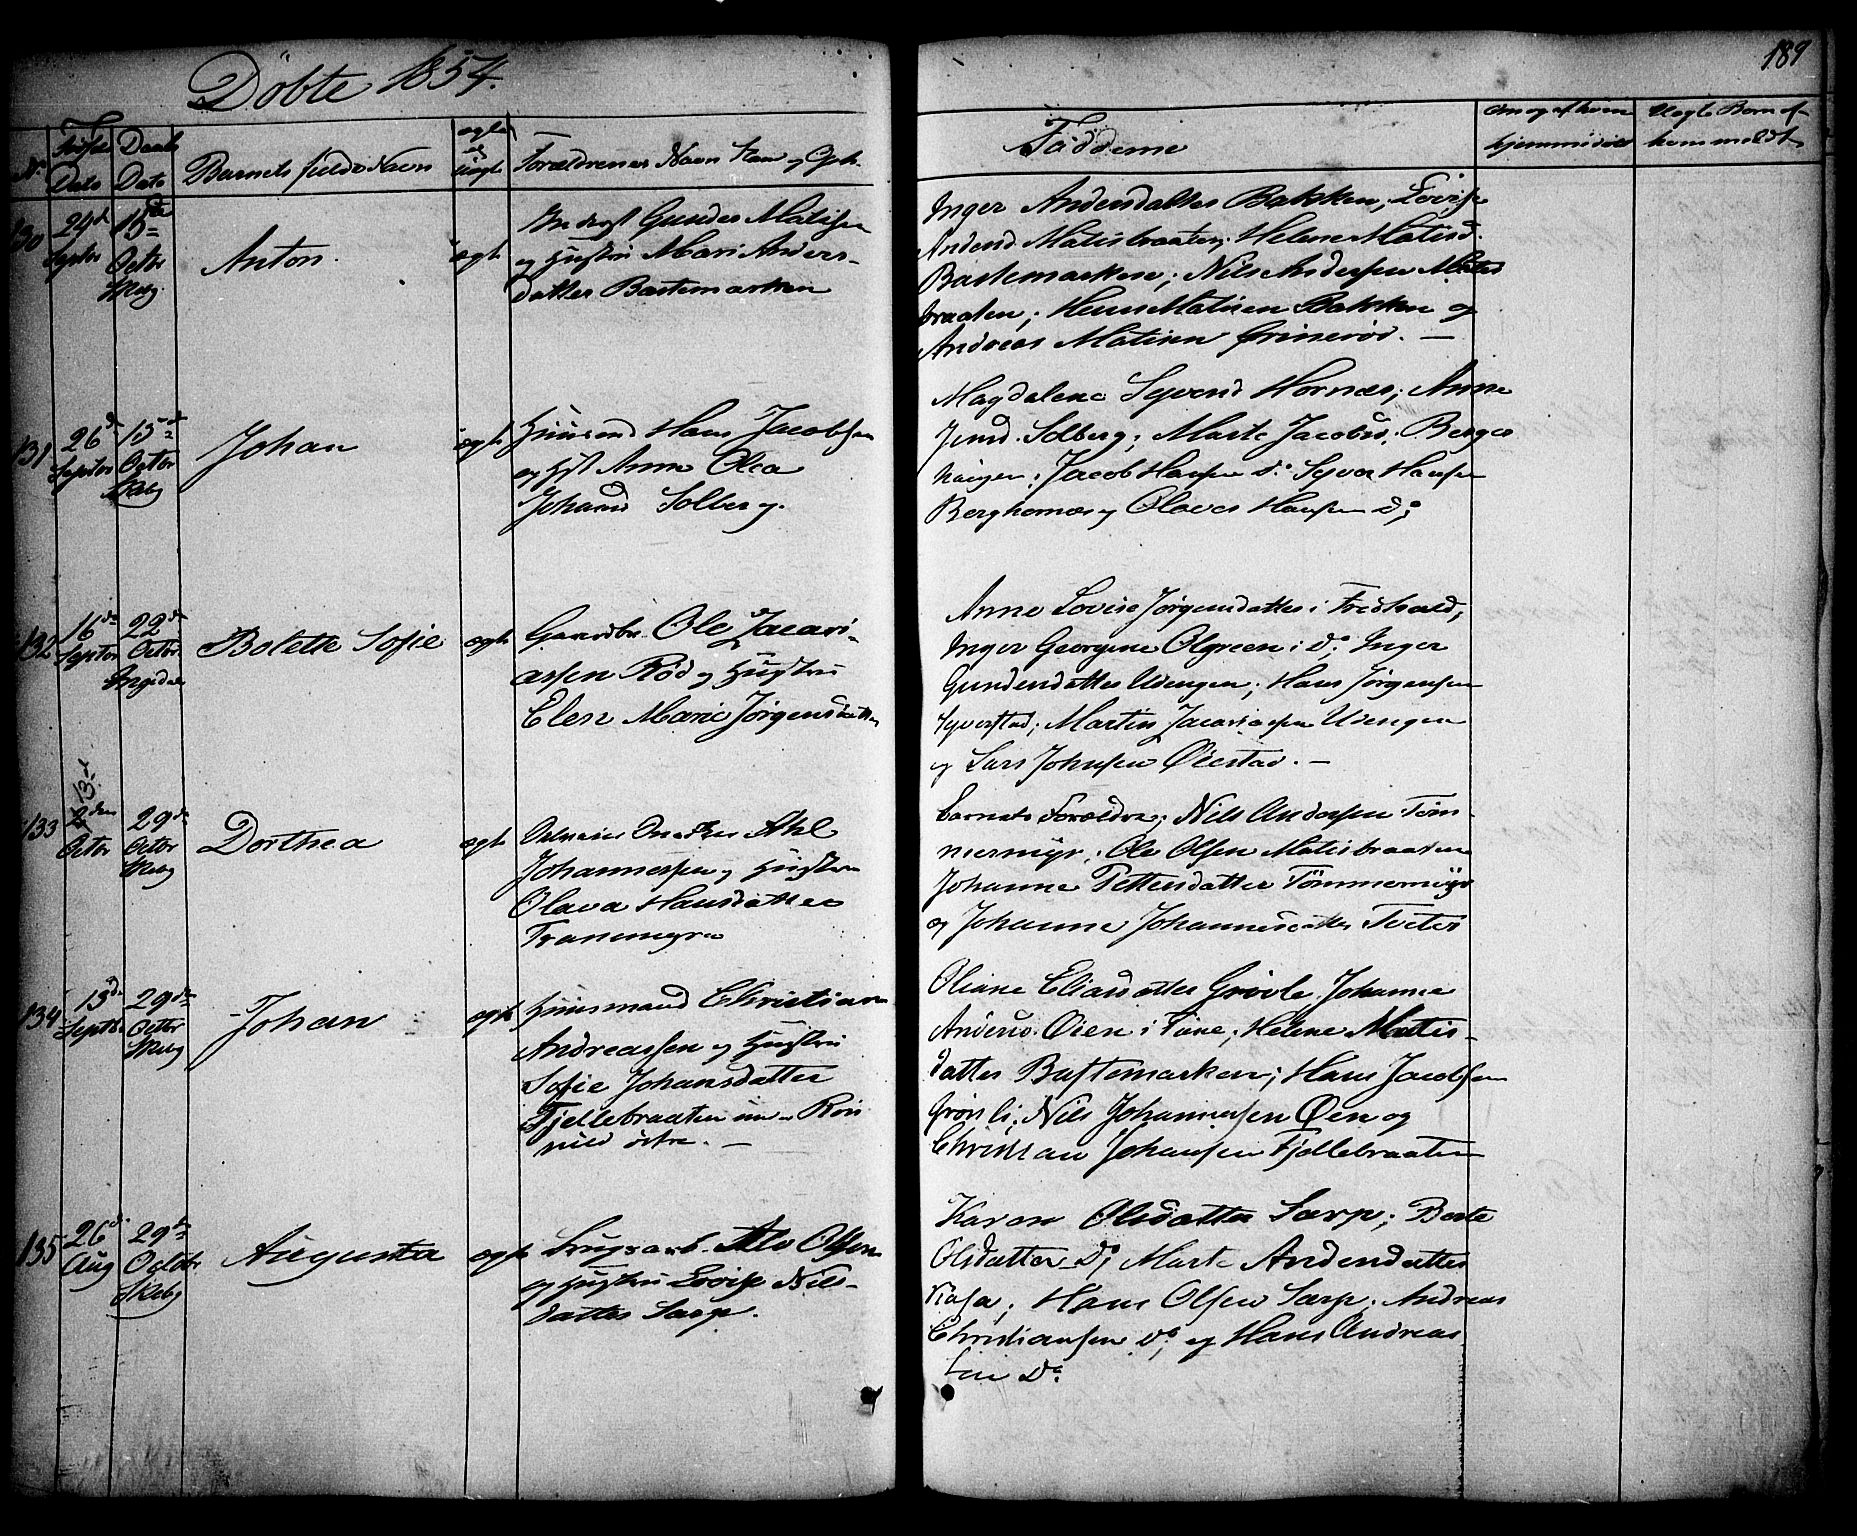 Döbte 1854.
189
No
Födsels Dato
Daabs Dato
Barnets fulde Navn
ægte og uægte
Forældrenes Navn Stand og Oph.
Fadderne
om og af hvem hjemmedöbt
Uægte Börn af hvem meldt
130
29d Septbr
15de Octbr Skeby
Anton.
ægte
Inderst Gunder Matisen
og Hustru Mari Anders-
datter Bastemarken
Inger Andersdatter Bakken; Lovise
Andersd. Matisbraaten; Helene Matisd.
Bastemarken; Nils Andersen Matis
braaten; Hans Matisen Bakken og
Andreas Matisen Grinerød. —
131
26d Septbr
15d Octbr Skeby
Johan
ægte
Huusmd Hans Jacobsen
og Hst Anne Olea
Johansd Solberg.
Magdalena Syversd Hornæs; Anne
Jensd. Solberg; Marte Jacobsd. Berger
Jacob Hansen do Syver Hansen
Berghornæs og Olaves Hansen do;
132
16de Septbr
22de Octbr Ingedal
Bolette Sofie
ægte
Gaardbr. Ole Jacari-
assen Rød og Hustru
Elen Marie Jørgensdatter
Anne Lovise Jørgensdatter i Fredhald;
Inger Georgine Olgreen i do. Inger
Gundersdatter Udengen; Hans Jørgensen
Syverstad; Martin Jacariassen Udengen
og Lars Johnsen Øiestad. —
133
13d
Octbr
29de Octbr Skeby
Dorthea
ægte
Johannessen og Hustru
Olava Hansdatter
Barnets Forældre; Nils Andersen Töm-
mermyr; Ole Olsen Matisbraaten
Johanne Pettersdatter Tömmermyr
og Johanne Johannesdatter Tveter
134
13de Septbr
29de Octbr Skeby
Johan
ægte
Huusmand Christian
Andreassen og Hustru
Sofie Johansdatter
Fjellebraaten un. Rön
nild östre. —
Oliane Eliasdatter Johanne
Andersd. Øien i Tune; Helene Matis-
datter Bastemarken; Hans Jacobsen
Grönli; Nils Johannesen Øien og
Christian Johansen Fjellebraaten
135
26d. Aug
29de Octbr. Skeby
Augusta
ægte
Brugsarb. Olsen
og Hustru Lovise Nils-
datter Sarp.
Karen Olsdatter Sarp; Berte
Olsdatter Do; Marte Andersdatter
Hans Olsen Sarp; Andreas
Christiansen Do; og Hans Andreas
Do.